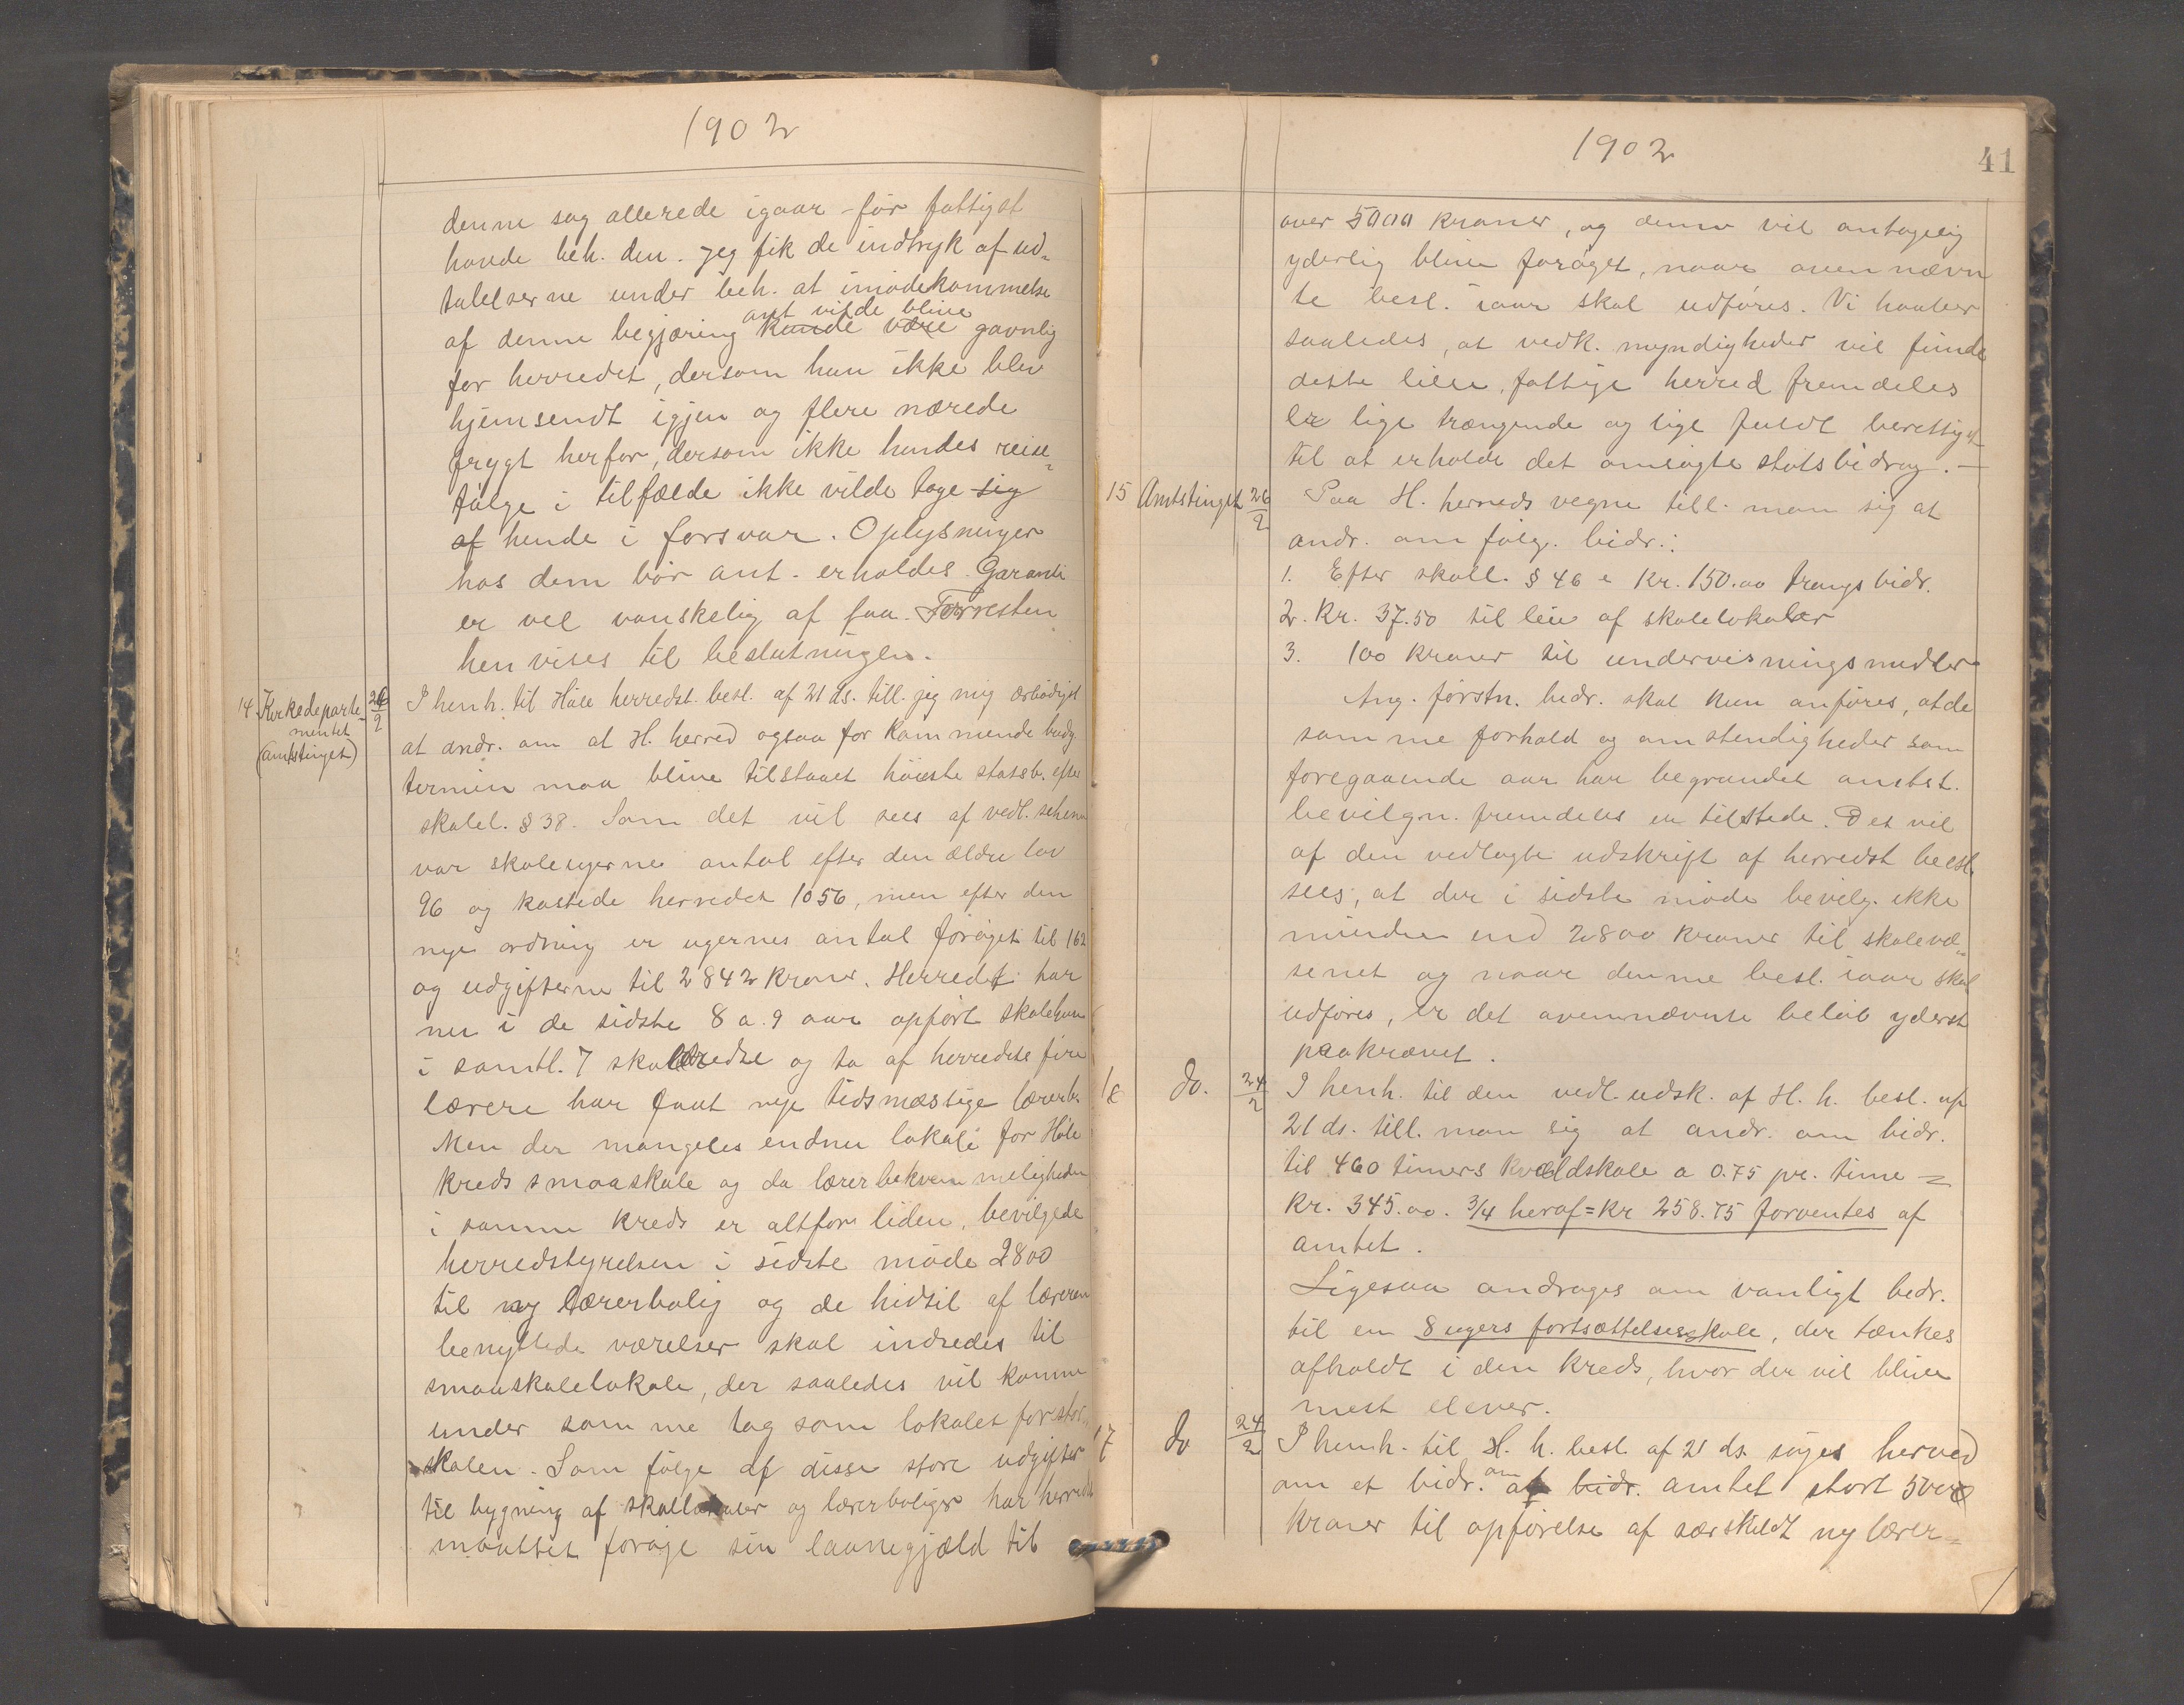 1902
denne sag allerede igaar – før fattigst
havde beh. den. Jeg fik de indtryk af ud-
talelserne under beh. at imødekommelse
ant vilde blive
af denne begjæring kunde være gavnlig
for herredet, dersom hun ikke blev
hjemsendt igjen og flere nærede
frygt herfor, dersom ikke hendes reise-
følge i tilfælde ikke vilde tage sig
af hende i forsvar. Oplysninger
hos dem bør ant. erholdes. Garanti
er vel vanskelig af faa. Forresten
henvises til beslutningen.
14. Kirkedeparte-
mentet
(Amtstinget)
26/2
I henh. til Håle herredst. besl. af 21 ds. till. jeg mig ærbødigst
at andr. om at H. herred ogsaa for kommende budg.
termin maa blive tilstaaet høieste statsb. efter
skolel. § 38. Som det vil sees af vedl. schema
var skoleugernes antal efter den ældre lov
96 og kostede herredet 1056, men efter den
nye ordning er ugernes antal forøget til 162
og udgifterne til 2842 kroner. Herredet har
nu i de sidste 8 a 9 aar opført skolehuse
i samtl. 7 skolekredse og to af herredets fire
lærere har faaet nye tidsmæssige lærerb.
Men der mangeles endnu lokale for Håle
kreds smaaskole og da lærerbekvemmeligheden
i samme kreds er altfor liden, bevilgede
herredstyrelsen i sidste møde 2800
til ny lærerbolig og de hidtil af læreren
benyttede værelser skal indredes til
smaaskolelokale, der saaledes vil komme
under samme tag som lokalet for stor-
skolen. Som følge af disse store udgifter
til bygning af skollokaler og lærerboliger har herredet
maattet forøge sin laanegjæld til
1902
41
over 5000 kroner, og denne vil antagelig
yderlig blive forøget, naar ovennævn
te besl. iaar skal udføres. Vi haaber
saaledes, at vedk. myndigheder vil finde
dette lille, fattige herred fremdeles
er lige trængende og lige fuldt berettiget
til at erholde det omsøgte statsbidrag. –
15 Amtstinget 26/2
Paa H. herreds vegne till. man sig at
andr. om følg. bidr.:
1. Efter skoll. § 46 e Kr. 150.00 trangsbidr.
2. Kr. 37.50 til leie af skolelokaler
3. 100 kroner til undervisningsmidler
Ang. førstn. bidr. skal kun anføres, at de
samme forhold og omstendigheder som
foregaaende aar har begrundet amtst.
bevilgn. fremdeles er tilstede. Det vil
af den vedlagte udskrift af herredst besl.
sees, at der i sidste møde bevilg. ikke
mindre end 2800 kroner til skolevæ-
senet og naar denne besl. iaar skal
udføres, er det ovennævnte beløb yderst
paakrævet.
16 do. 24/2
I henh. til den vedl. udsk. af H. h. besl. af
21 ds. till. man sig at andr. om bidr.
til 460 timers kveldskole a 0.75 pr. time =
Kr. 345.00. 3/4 heraf = Kr 258.75 forventes af
amtet.
Ligesaa andrages om vanligt bidr.
til en 8 ugers fortsættelsesskole, der tænkes
afholdt i den kreds, hvor der vil blive
mest elever.
17 do 24/2
I henh. til H. h. besl. af 21 ds. søges herved
om
om et bidr. af bidr. amtet stort 500
kroner til opførelse af særskildt ny lærer-